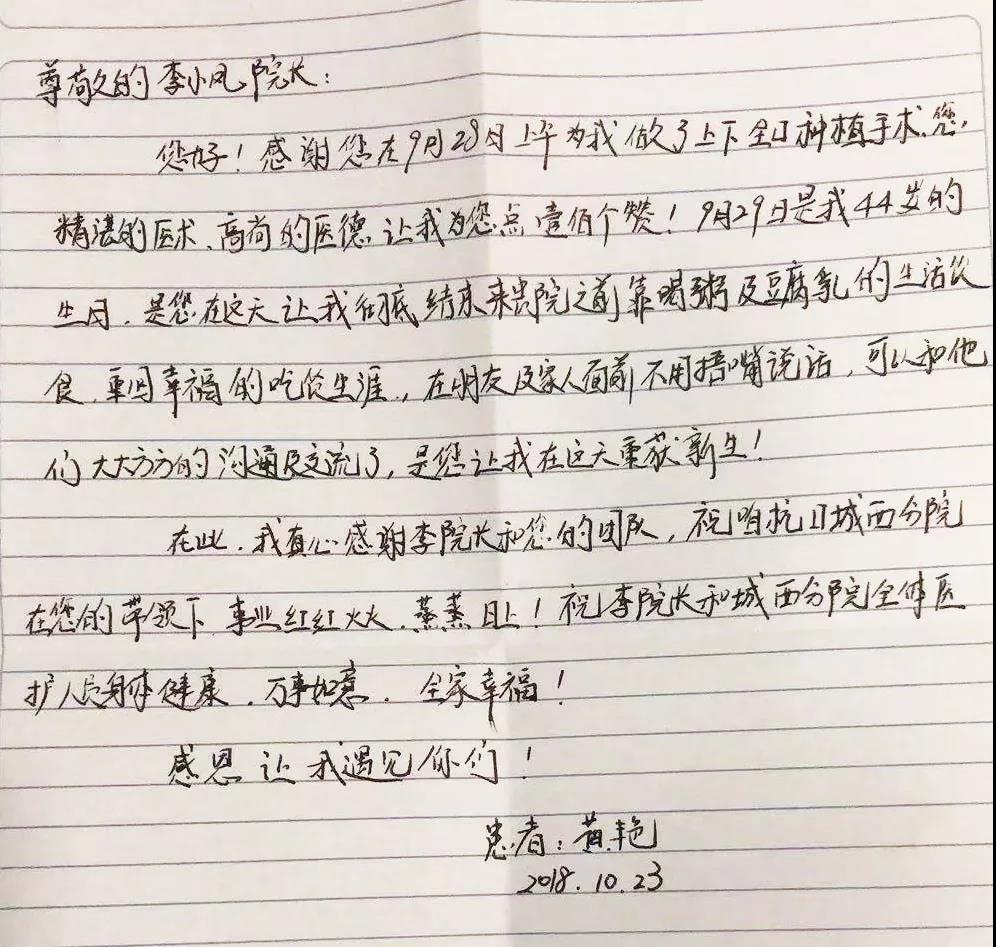 尊敬的李小凤院长：
您好！感谢您在9月28日上午为我做了上下全口种植手术.您,
精湛的医术、高尚的医德让我为您点壹佰个赞！9月29日是我44岁的
生日，是您在这天让我彻底结束来贵院之前靠喝粥及豆腐乳的生活饮
食，重回幸福的吃饮生涯，在朋友及家人面前不用捂嘴说话，可以和他
们大大方方的沟通及交流了，是您让我在这天重获新生！
在此，我真心感谢李院长和您的团队，祝咱杭口城西分院
在您的带领下事业红红火火.蒸蒸日上！祝李院长和城西分院全体医
护人员身体健康.万事如意.全家幸福！
感恩让我遇见你们！
患者：黄艳
2018.10.23